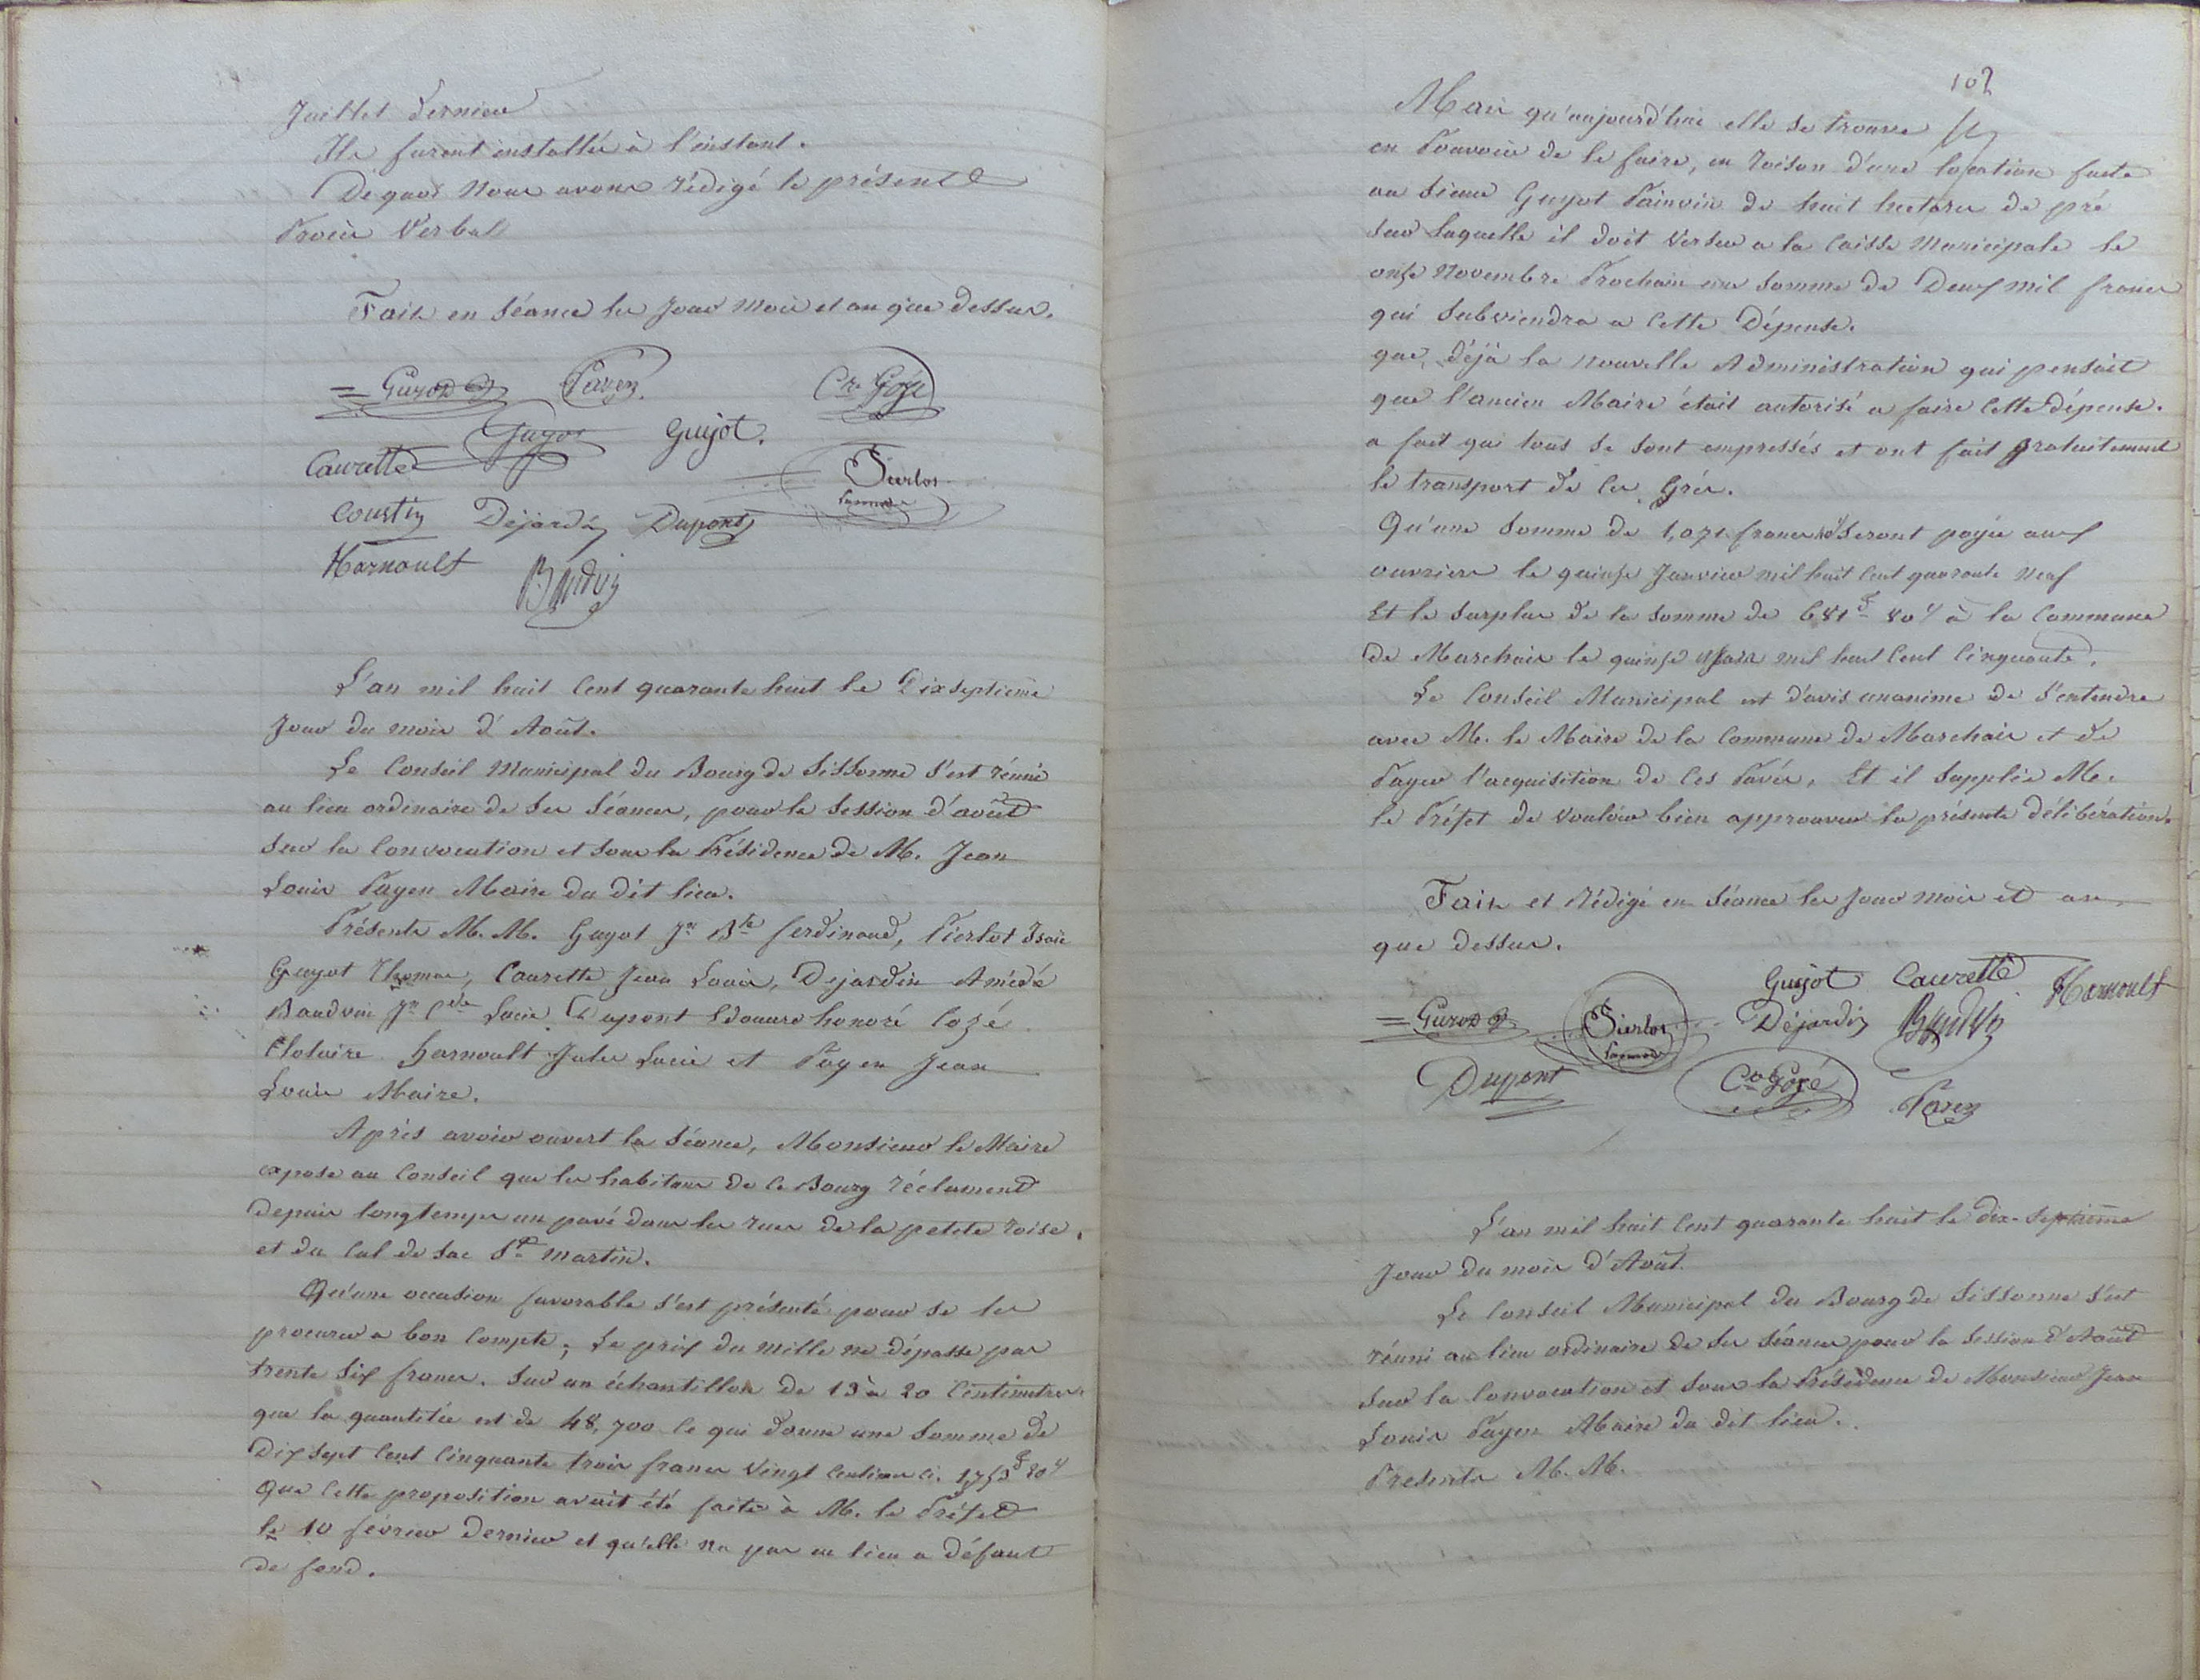 Juillet dernier
Ils furent installés à l'instant.
De quoi Nous avons rédigé le présent
Procès Verbal
Fait en Séance les Jour Mois et an que dessus.
Guyot Payen Cre Cozé
Guyot Guyot.
Caurette Pierlot
Coustin Déjardin Dupont
Harnoult Baudvin
L'an mil huit Cent quarante huit le Dix Septième
Jour du mois d'Août.
Le Conseil Municipal du Bourg de Sissonne s'est réuni
au lieu ordinaire de Ses Séances, pour la Session d'août
Sur la Convocation et Sous la Présidence de M. Jean
Louis Payen Maire du dit lieu.
Présents M. M. Guyot Jn Bte ferdinand, Pierlot Isaïe
Guyot Thomas, Caurette Jean Louis, Dejardin Amédé
Baudvin Jn Louis Dupont Edouard honoré Cozé
Clotaire Harnoult Jules Louis et Payen Jean
Louis Maire.
Après avoir ouvert la Séance, Monsieur le Maire
expose au Conseil que les habitans de Ce Bourg réclament
depuis longtemps un pavé dans les rues de la petite roise.
et du Cul de Sac St Martin.
Qu'une occasion favorable s'est présenté pour se les
procurer a bon Compte; Le prix du mille ne dépasse pas
trente Six francs. Sur un échantillon de 19 à 20 Centimetres.
que la quantitée est de 48,700 Ce qui donne une Somme de
Dix Sept Cent Cinquante trois francs Vingt Centimes Ci. 1,753 F 20 c
Que Cette proposition avait été faite à M. le Préfet
le 10 février Dernier et qu'elle n'a pas eu lieu a défaut
de fond.
102
Mais qu'aujourd'hui elle se trouve
en Pouvoir de le faire, en raison d'une location faite
au Sieur Guyot Painvin de huit hectares de pré
Sur Laquelle il doit Verser a la Caisse Municipale le
onze Novembre Prochain une Somme de Deux mil francs
qui Subviendra a Cette Dépense.
que, déjà la Nouvelle Administration qui pensait
que l'ancien Maire était autorisé a faire Cette dépense.
a fait qui tous Se Sont empressés et ont fait gratuitement
le transport de Ces Grès.
Qu'une Somme de 1,071 francs Seront payée aux
ouvriers le quinze Janvier mil huit Cent quarante Neuf
Et le Surplus de la Somme de 681 F 80 c à la Commune
de Marchais le quinze Mars mil huit Cent Cinquante.
Le Conseil Municipal est d'avis unanime de S'entendre
avec M. le Maire de la Commune de Marchais et de
Payer l'acquisition de Ces Pavés, Et il Supplie M.
le Préfet de Vouloir bien approuver la présente délibération.
Fait et Rédigé en Séance les Jour mois et an
que dessus.
Guyot Caurette Harnoult
Guyot Pierlot Déjardin Baudvin
Dupont Cre Cozé Payen
L'an mil huit Cent quarante huit le dix-Septième
Jour du mois d'Août.
Le Conseil Municipal du Bourg de Sissonne S'est
réuni au lieu ordinaire de Ses Séances pour la Session d'Août
Sur la Convocation et Sous la Présidence de Monsieur Jean
Louis Payen Maire du dit lieu.
Presents M. M.